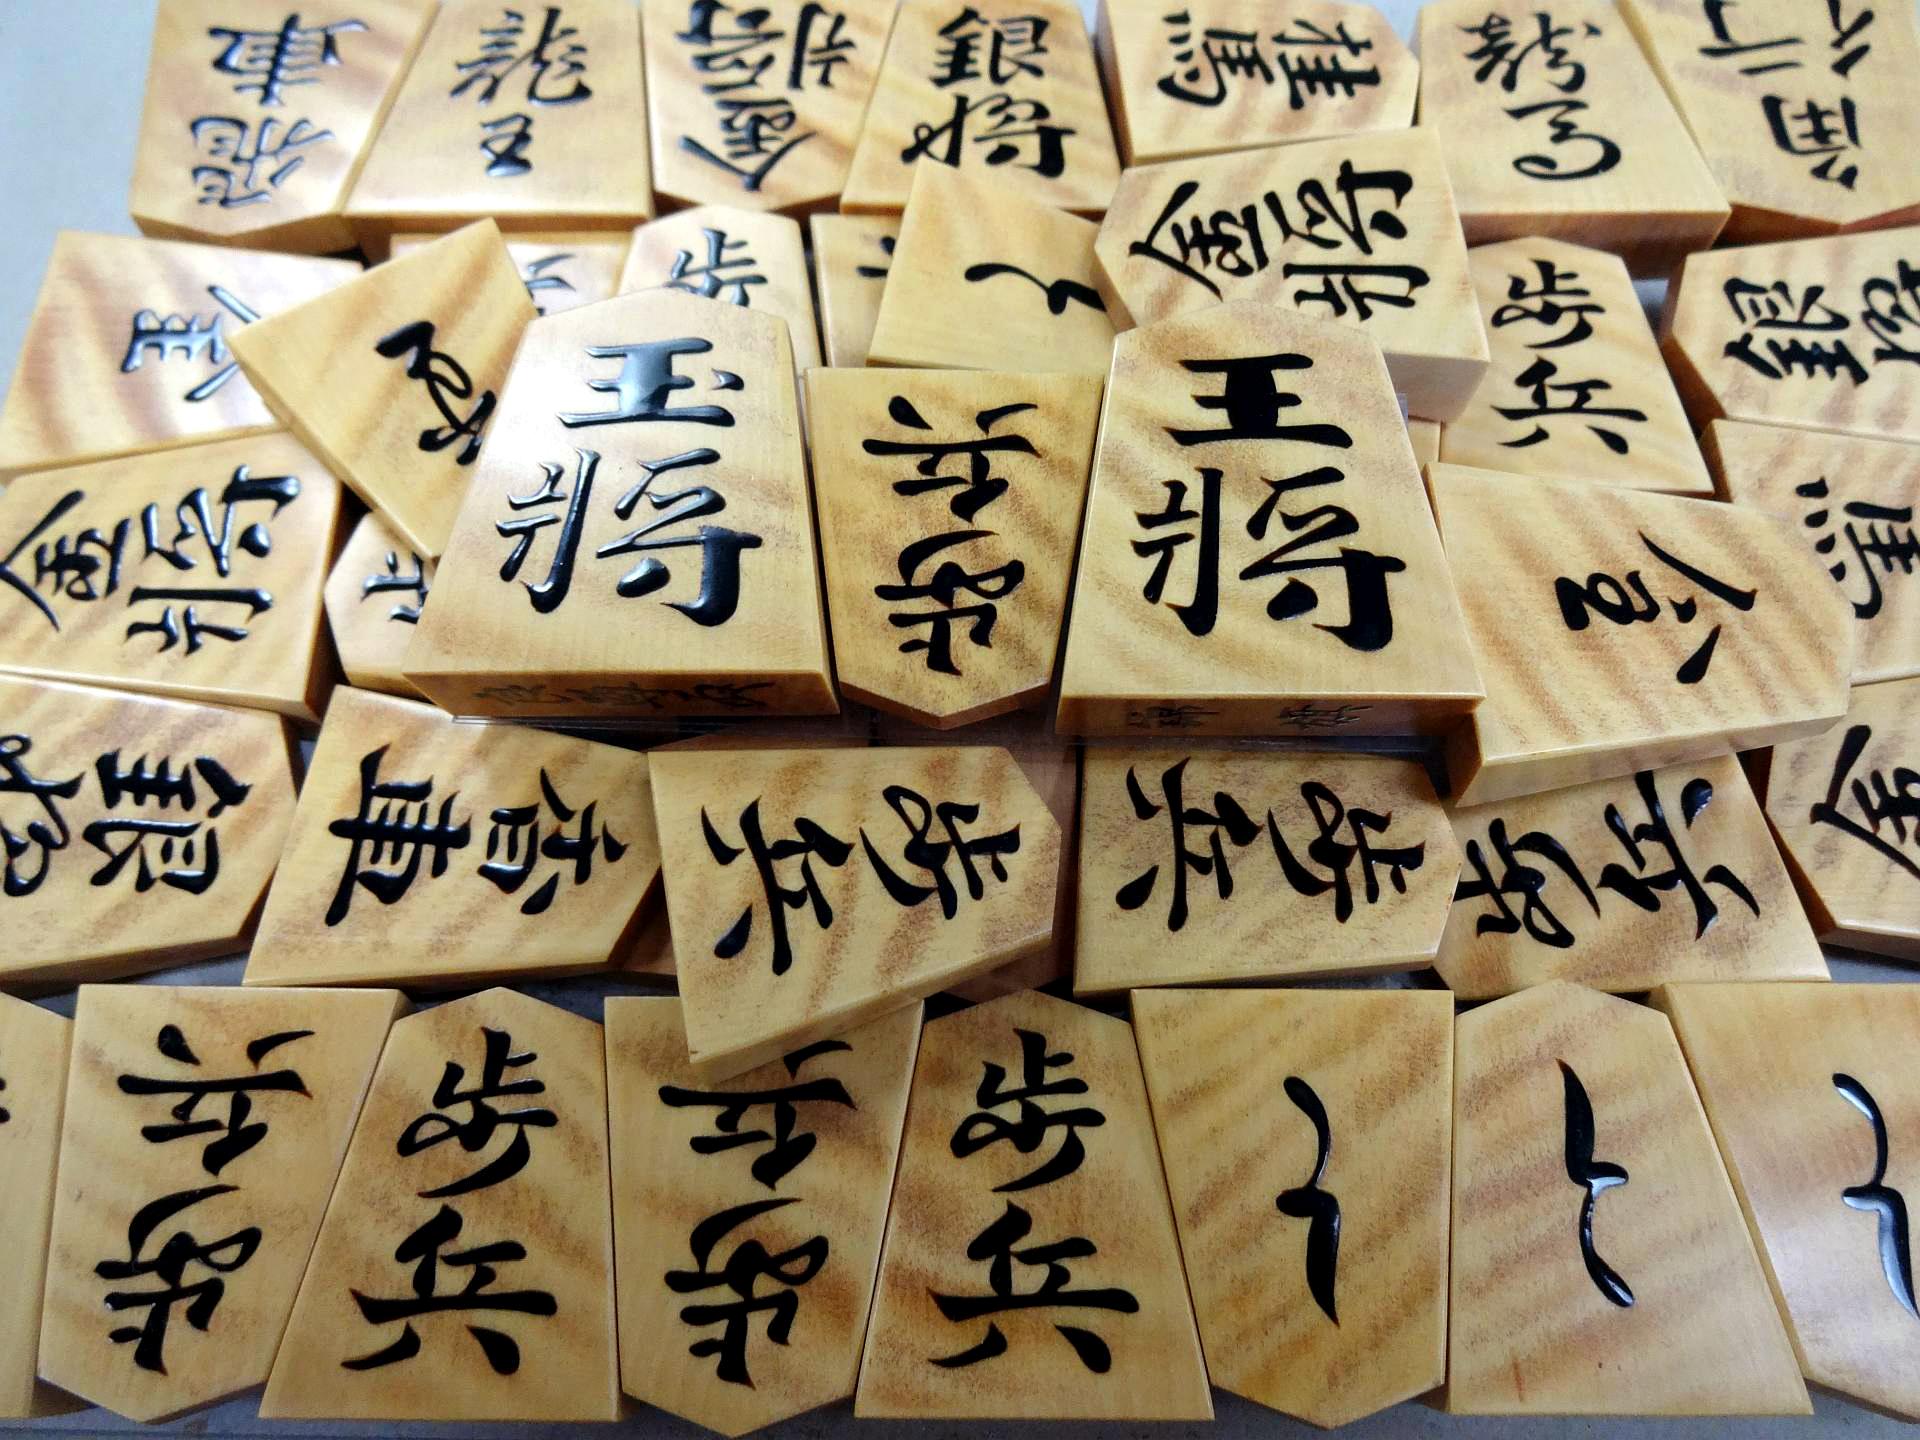 飛車
龍王
金将
銀将
桂馬
龍馬
香
歩
と
金将
歩兵
銀将
玉将
歩兵
王将
金将
全
馬
銀将
香車
歩兵
歩兵
歩兵
金
歩兵
歩兵
歩兵
歩兵
と
と
と